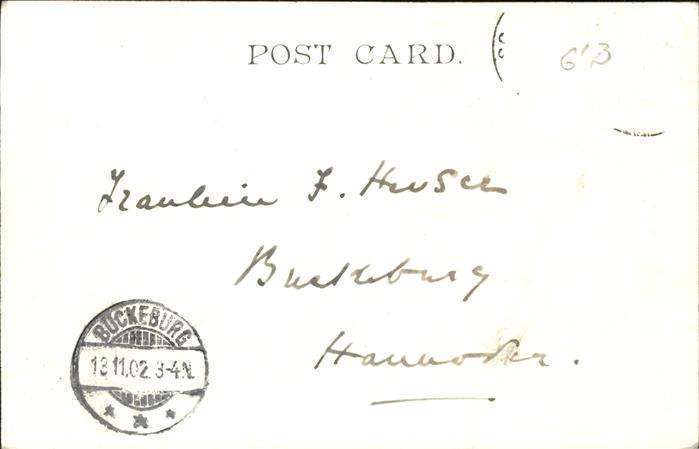 POST CARD.
6'B
Fraulein F. Heuser
Buckeburg
Hannover.
BÜCKEBURG
13.11.02. 3-4N.